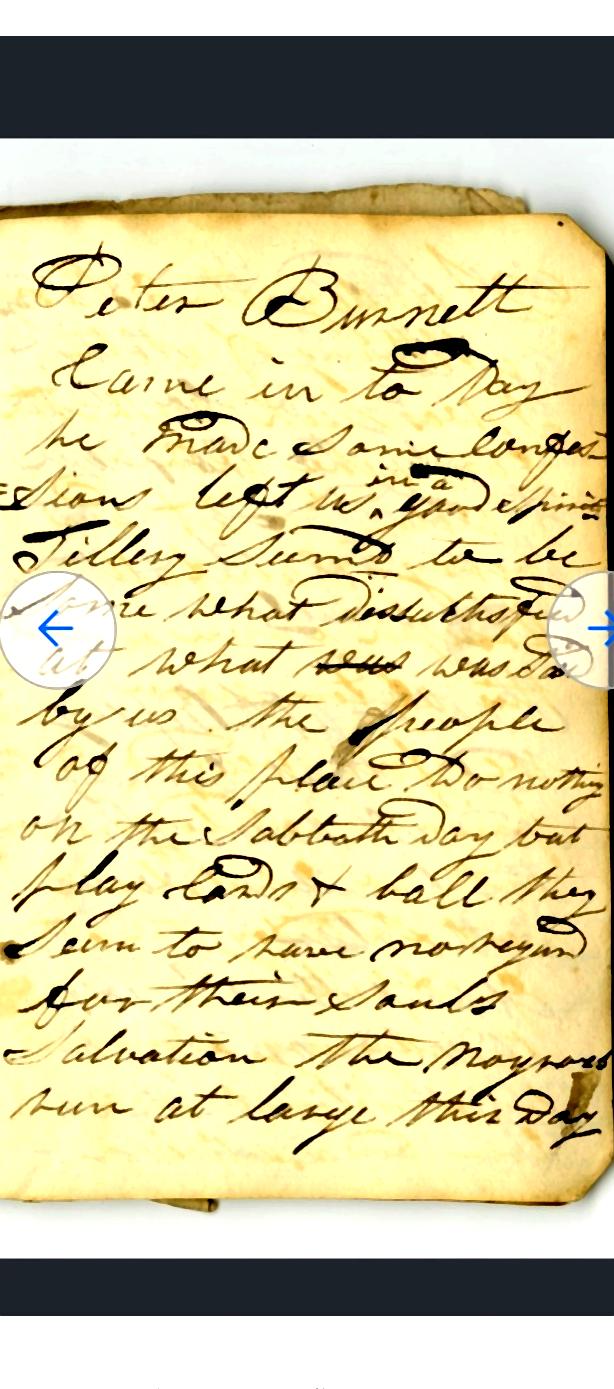 Peter Burnett
Came in to Day
he made Some Confes=
=Sions left us in a good Spirit
Tillery Seemd to be
Some what
at what was was Said
by us the people
of this place Do nothing
on the Sabbath Day but
play Cards & ball they
Seem to have no regard
for their Souls
Salvation the
run at large this Day